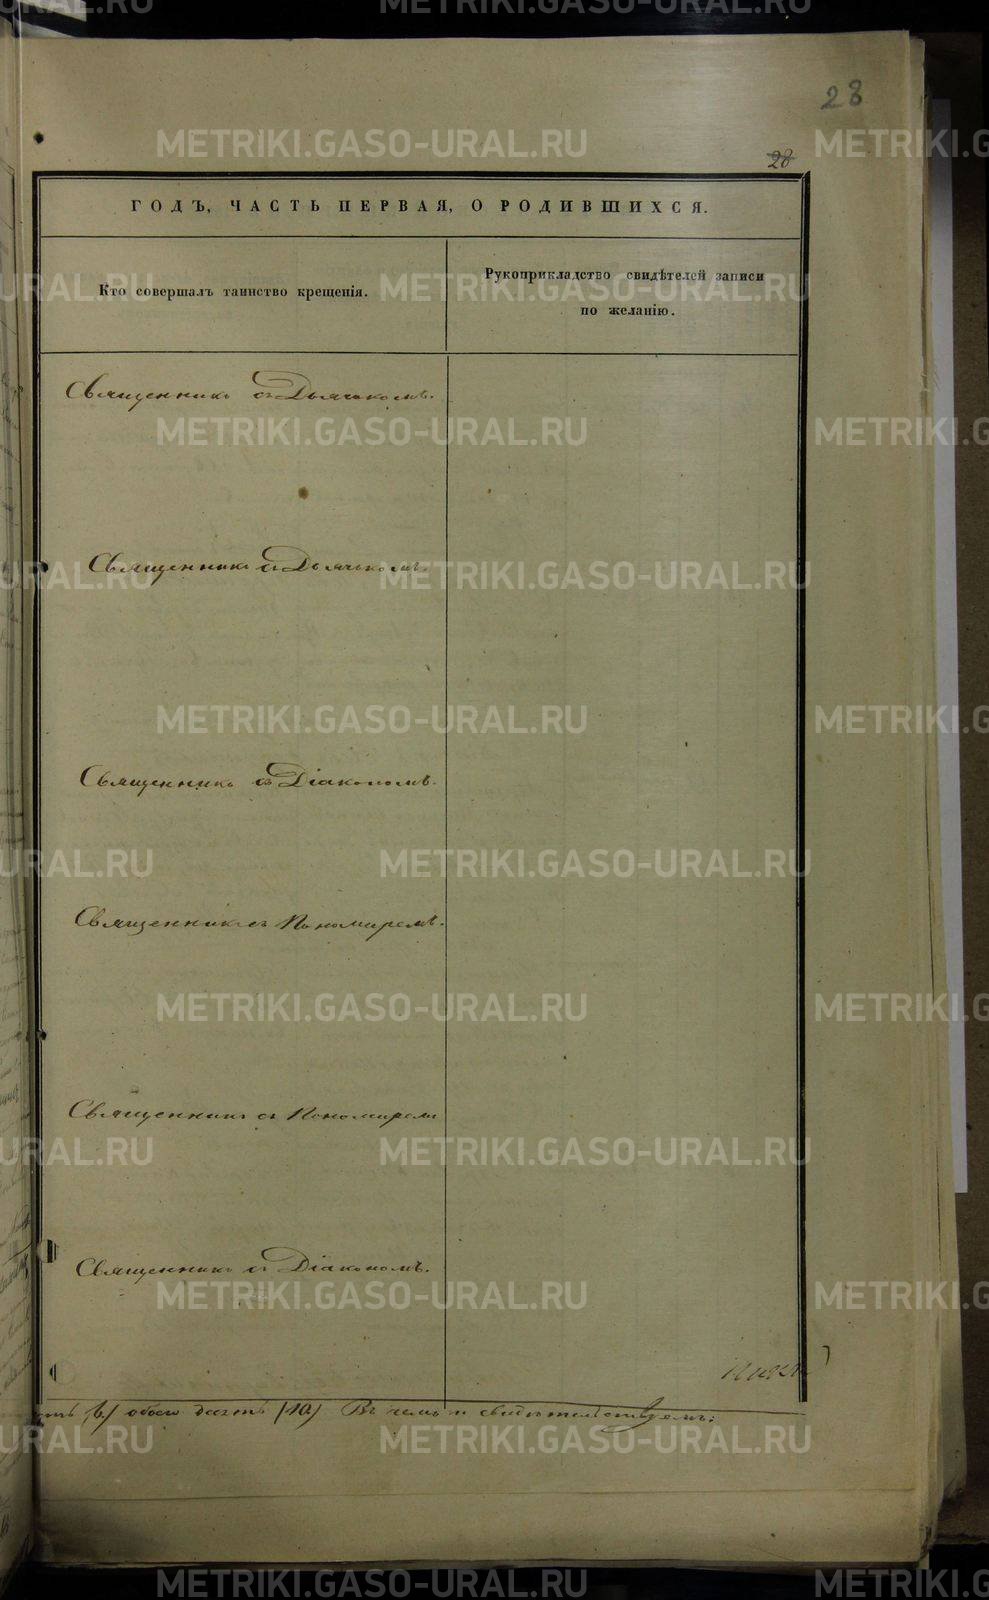 28
28
ГОДЪ, ЧАСТЬ ПЕРВАЯ, О РОДИВШИХСЯ.
Кто совершалъ таинство крещенія.
Рукоприкладство свидѣтелей записи
по желанію.
Священникъ съ Дьячькомъ.
Священникъ съ Дьячькомъ.
Священникъ съ Діакономъ.
Священникъ съ Пономиремъ.
Священникъ съ Пономирем
Священникъ съ Діакономъ.
обоего десять (10) Въ чемъ и свидѣтельствуемъ:
METRIKI.GASO-URAL.RU